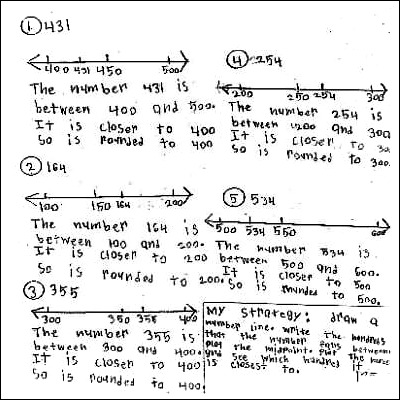 ① 431
400 431 450 500
The number 431 is
between 400 and 500.
It is closer to 400
So is rounded to 400
② 164
100 150 164 200
The number 164 is
between 100 and 200.
It is closer to 200
So is rounded to 200.
③ 355
300 350 355 400
The number 355 is
between 300 and 400.
It is closer to 400
So is rounded to 400
④ 254
200 250 254 300
The number 254 is
between 200 and 300
It is closer to 30
So is rounded to 300.
⑤ 534
500 534 550 600
The number 534 is
between 500 and 600.
It is closer to 500
So is rounded to 500.
My strategy: draw a
number line. write the hundreds
that the number falls between
and the midpoint. plot the
see which hundred it
is closest to.